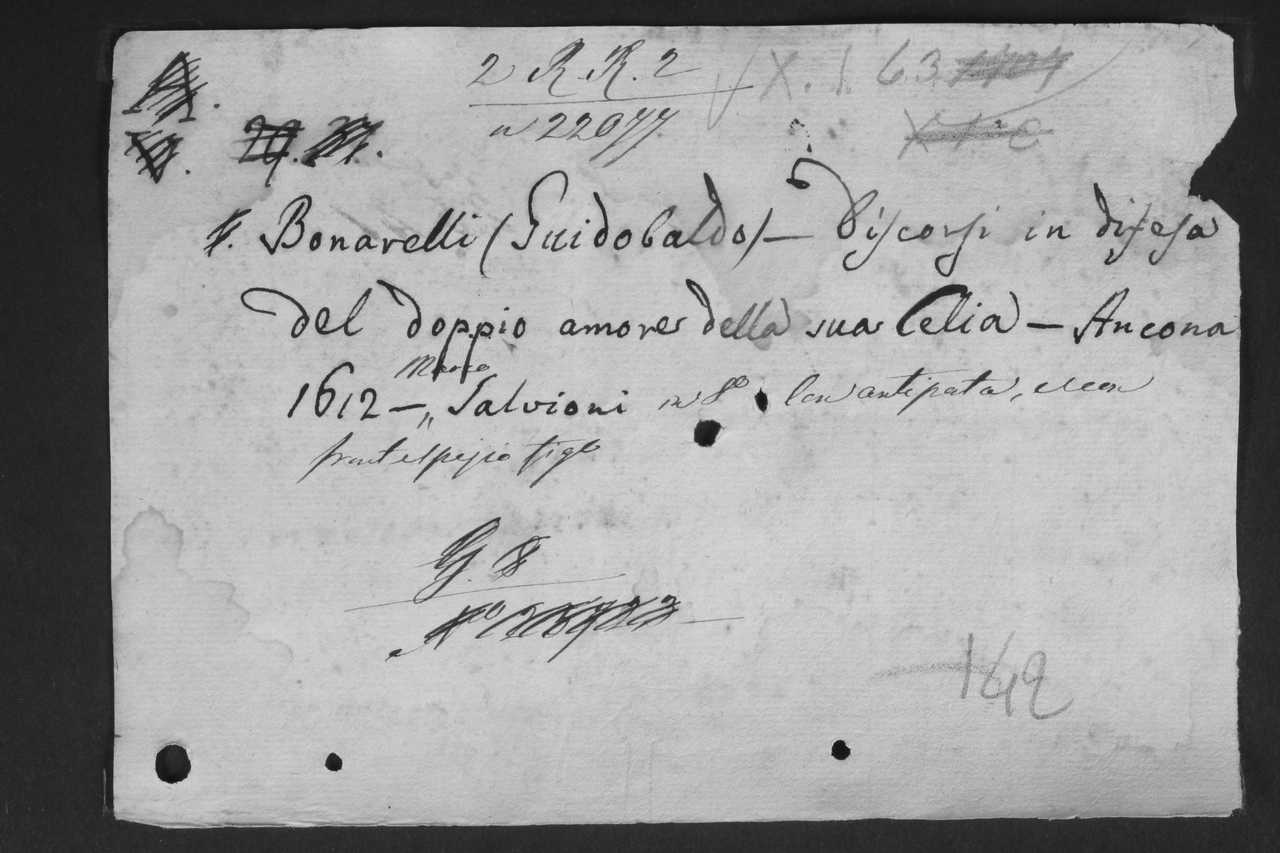 2 R.R. 2
n 22077.
X. 1. 63
Bonarelli (Guidobaldo) — Discorsi in difesa
del doppio amore della sua Celia — Ancona
1612 — Marco Salvioni in 8º Con antipata, e con
frontespizio figº
G. 8
142